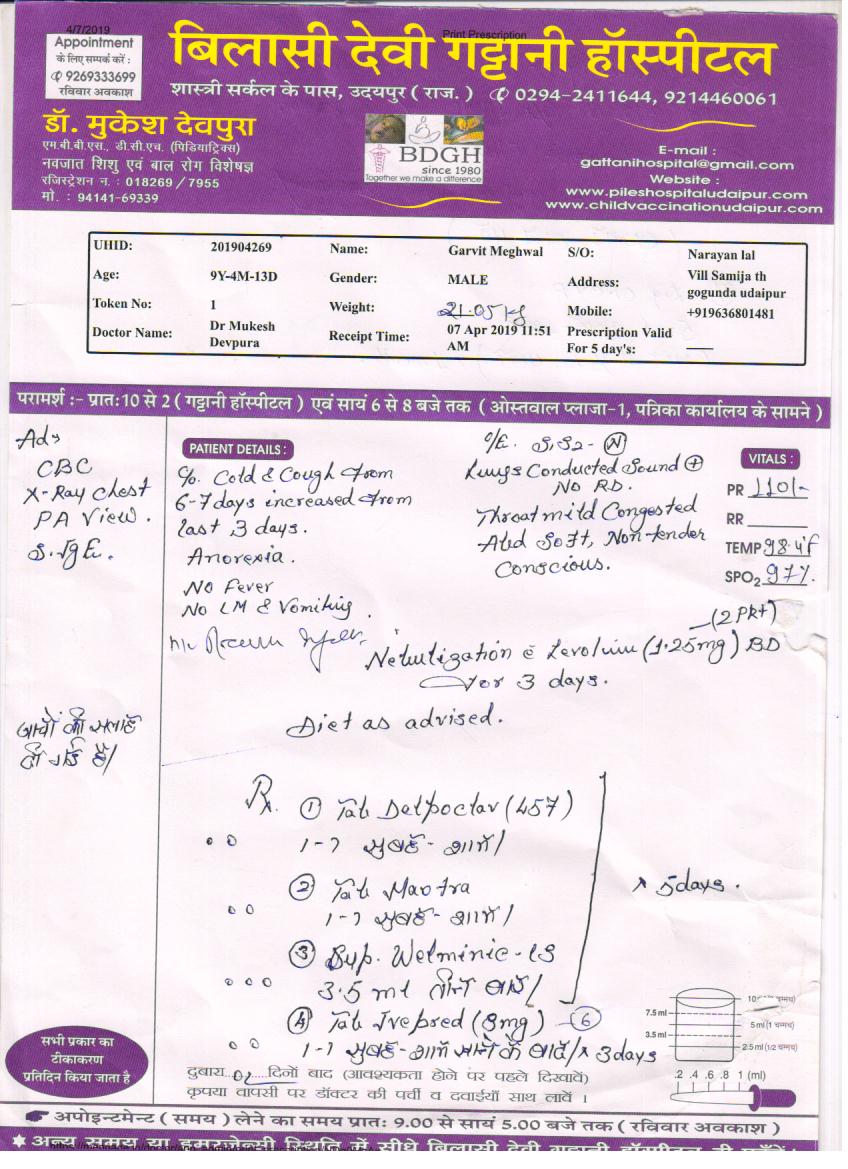 4/7/2019
Print Prescription
Appointment
के लिए सम्पर्क करें :
✆ 9269333699
रविवार अवकाश
बिलासी देवी गट्टानी हॉस्पीटल
शास्त्री सर्कल के पास, उदयपुर ( राज. ) ✆ 0294-2411644, 9214460061
डॉ. मुकेश देवपुरा
एम.बी.बी.एस., डी.सी.एच. (पिडियाट्रिक्स)
नवजात शिशु एवं बाल रोग विशेषज्ञ
रजिस्ट्रेशन न. : 018269 / 7955
मो. : 94141-69339
BDGH
since 1980
Together we make a difference
E-mail :
gattanihospital@gmail.com
Website :
www.pileshospitaludaipur.com
www.childvaccinationudaipur.com
UHID: 201904269 Name: Garvit Meghwal S/O: Narayan lal
Age: 9Y-4M-13D Gender: MALE Address: Vill Samija th gogunda udaipur
Token No: 1 Weight: 21.05 kg Mobile: +919636801481
Doctor Name: Dr Mukesh Devpura Receipt Time: 07 Apr 2019 11:51 AM Prescription Valid For 5 day's:
परामर्श :- प्रातः 10 से 2 ( गट्टानी हॉस्पीटल ) एवं सायं 6 से 8 बजे तक ( ओस्तवाल प्लाजा-1, पत्रिका कार्यालय के सामने )
Adv
CBC
X-Ray chest
PA View.
S. IgE.
PATIENT DETAILS :
C/o. Cold & Cough from
6-7 days increased from
last 3 days.
Anorexia.
No Fever
No LM & Vomiting.
O/E. S1S2- N
Lungs Conducted Sound +
No RD.
Throat mild Congested
Abd Soft, Non-tender
Conscious.
VITALS :
PR 110/-
RR
TEMP 98.4°F
SPO2 97%.
(2 Pkt)
Nebulization c Levolin (1.25mg) BD
for 3 days.
Diet as advised.
जाचों की सलाह
दी गई है/
Rx. ① Tab
(457)
1-1 सुबह-शाम/
② Tab
1-1 सुबह-शाम/
③ Syp. Welminic-LS
3.5 ml तीन बार/
x 5days.
④ Tab
(8mg) ⑥
1-1 सुबह-शाम खाने के बाद/ x 3days
7.5 ml
3.5 ml
5 ml (1 चम्मच)
2.5 ml (1/2 चम्मच)
.2 .4 .6 .8 1 (ml)
सभी प्रकार का
टीकाकरण
प्रतिदिन किया जाता है
दुबारा...02...दिनों बाद (आवश्यकता होने पर पहले दिखावें)
कृपया वापसी पर डॉक्टर की पर्ची व दवाईयाँ साथ लावें ।
अपोइन्टमेन्ट ( समय ) लेने का समय प्रातः 9.00 से सायं 5.00 बजे तक ( रविवार अवकाश )